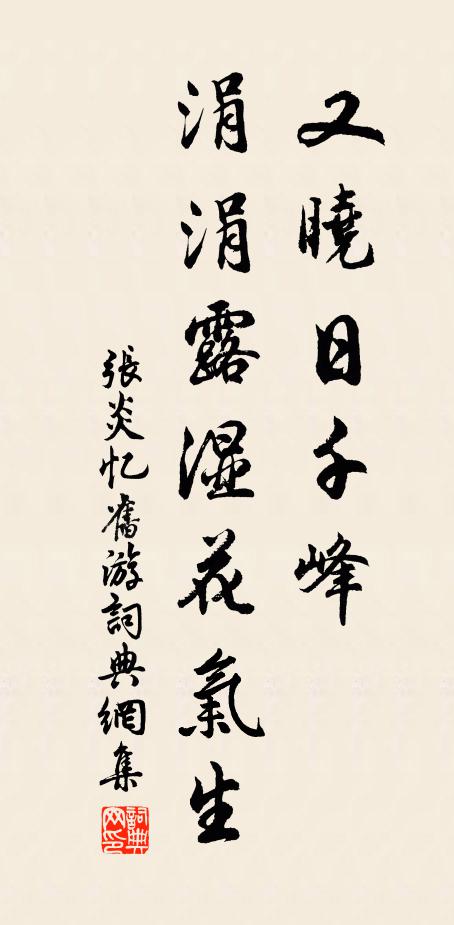 又曉日千峰
涓涓露湿花氣生
張炎忆舊游詞典網集
詞典网印